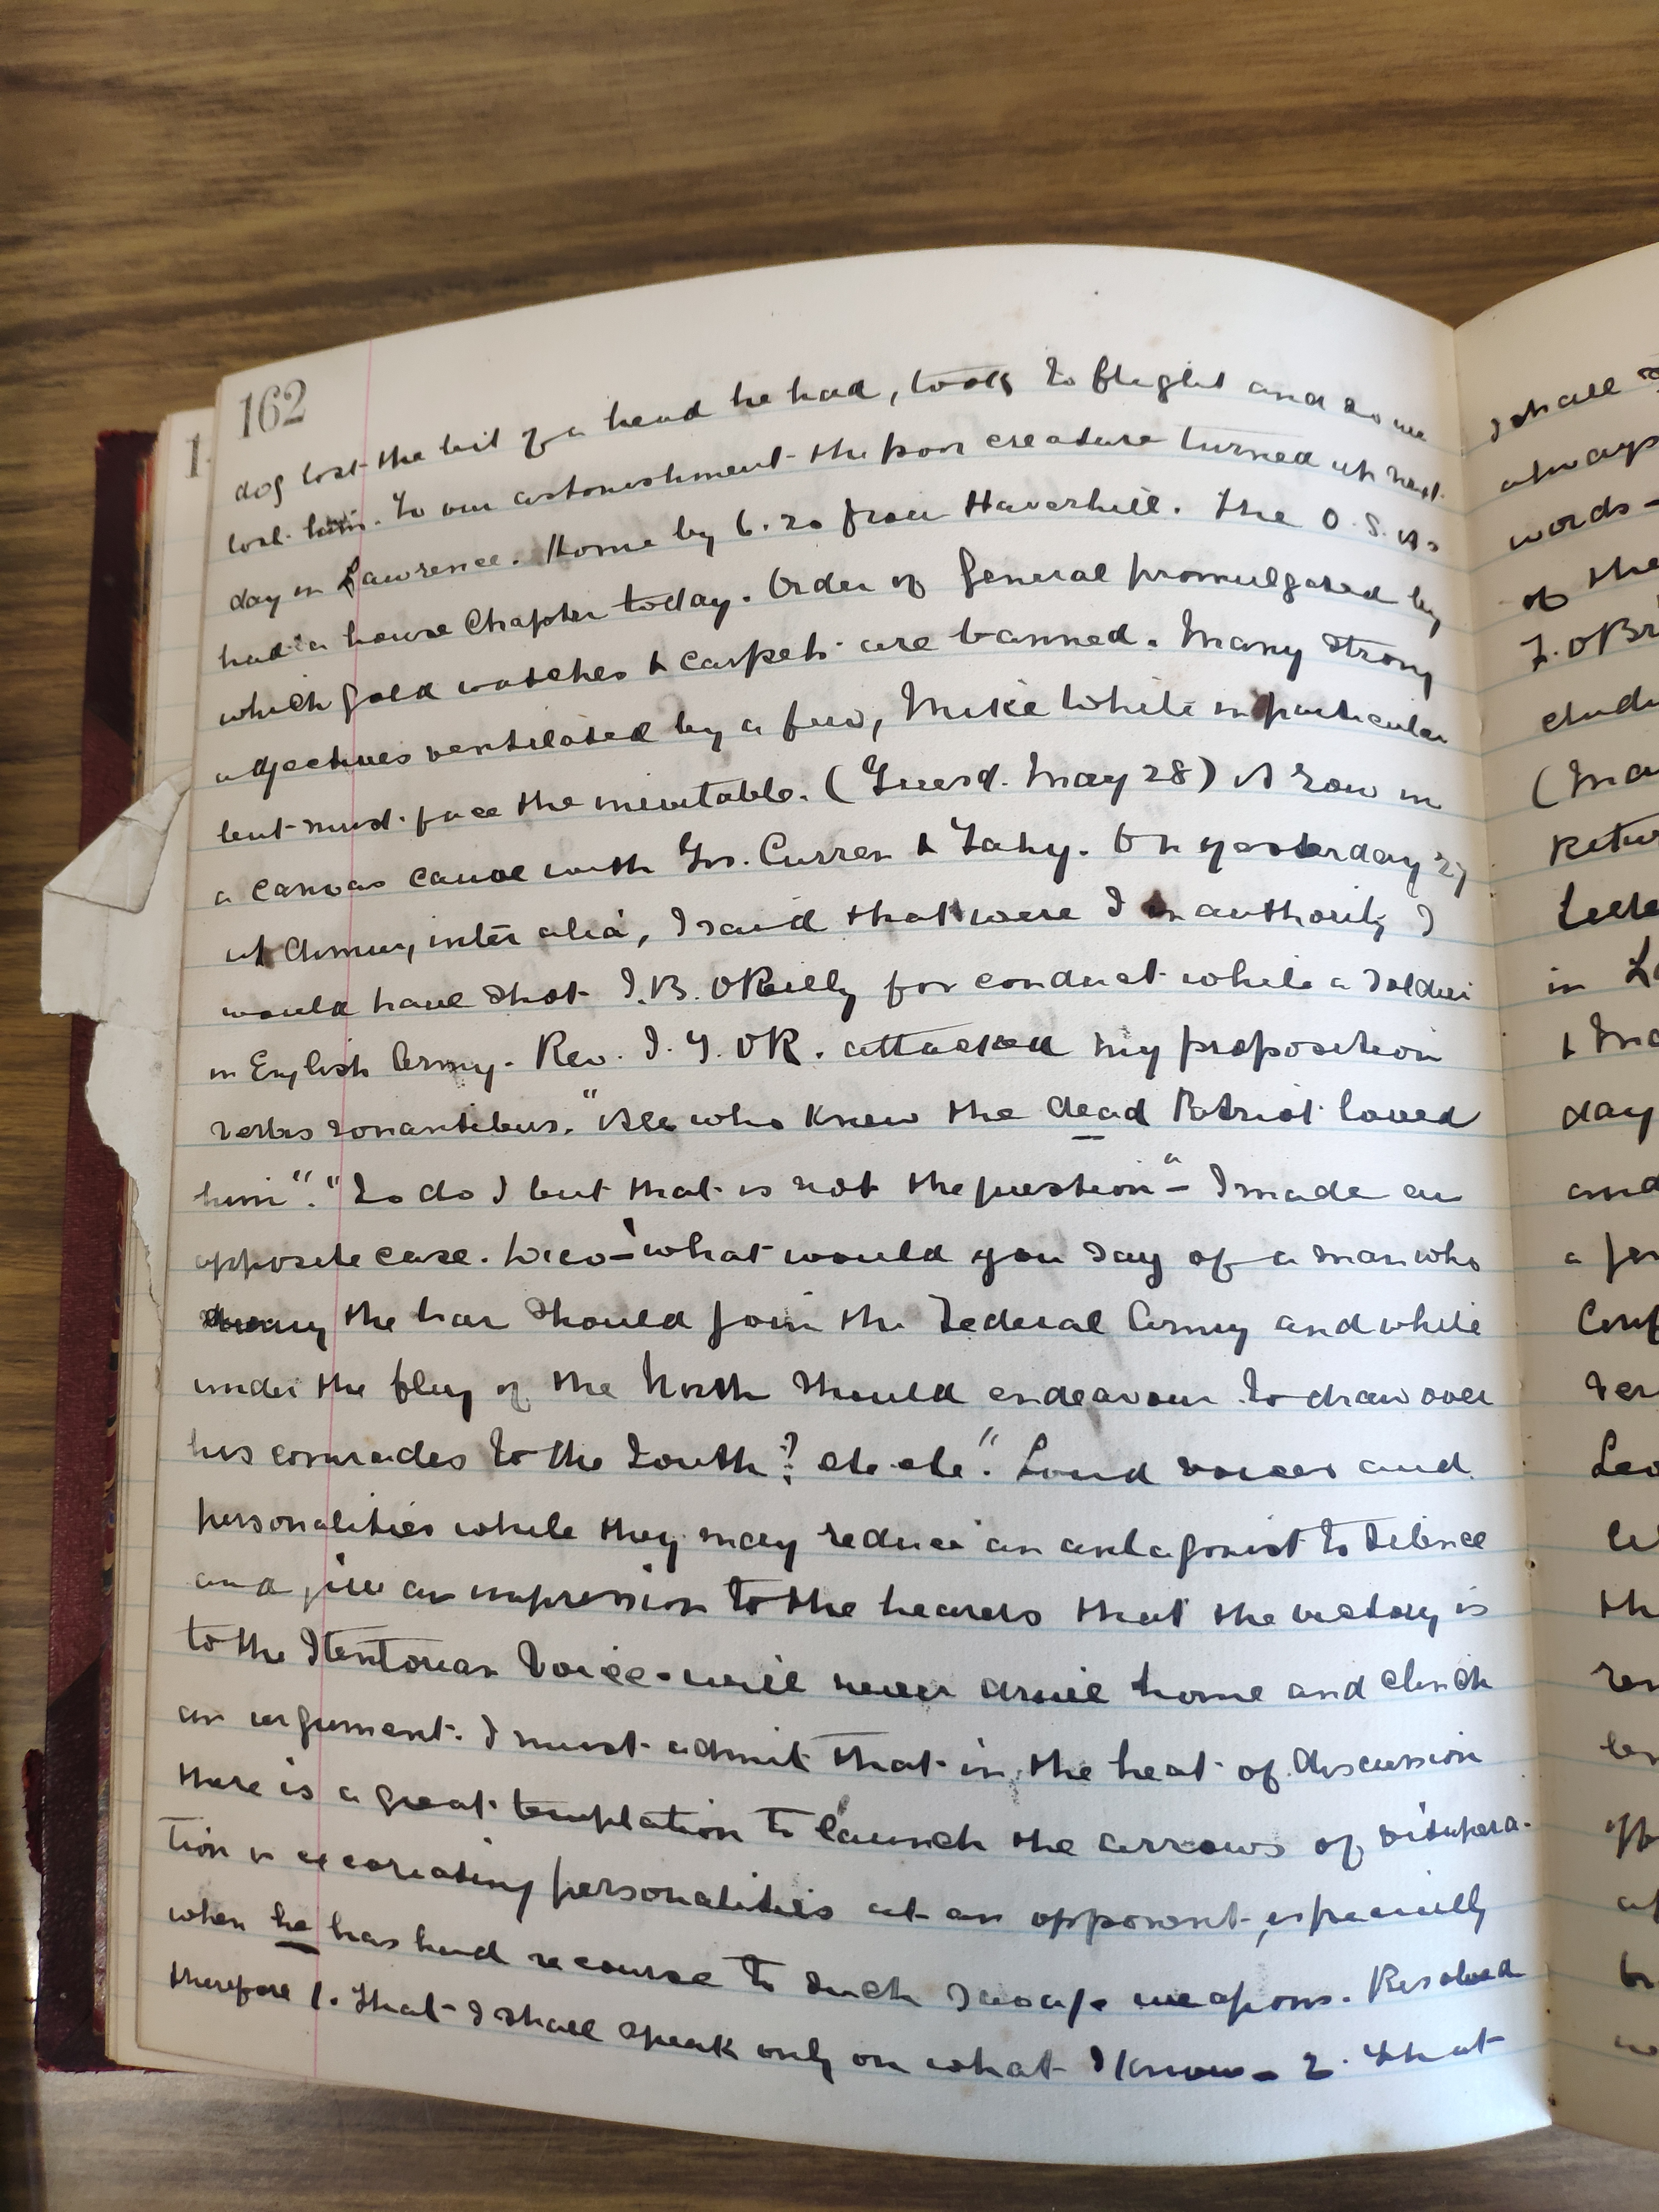 162
dog lost the bit of a head he had, took to flight and so we
lost him. To our astonishment the poor creature turned up next
day in Lawrence. Home by 6.20 from Haverhill. The O.S.As
had a house Chapter today. Order of General promulgated by
which gold watches & carpets are banned. Many strong
adjectives ventilated by a few, Mike While in particular
but must face the inevitable. (Tuesd. May 28) A row in
a canvas canoe with Jas. Curran & Fahy. On yesterday 27
at dinner, inter alia, I said that were I in authority I
would have shot J.B. OReilly for conduct while a soldier
in English Army. Rev. J. T. OR. attacked my proposition
verbis sonantibus. "All who knew the dead Patriot loved
him". "So do I but that is not the question" - I made an
opposite case. Dico - "what would you say of a man who
during the war should join the Federal Army and while
under the flag of the North should endeavour to draw over
his comrades to the South? etc etc". Loud voices and
personalities while they may reduce an antagonist to silence
and give an impression to the hearers that the victory is
to the Stentorian Voice - will never drive home and clinch
an argument. I must admit that in the heat of discussion
there is a great temptation to launch the arrows of vitupera-
tion or excoriating personalities at an opponent, especially
when he has had recourse to such savage weapons. Resolved
therefore 1. That I shall speak only on what I know - 2. That
I shall
always
words -
of the
day
and